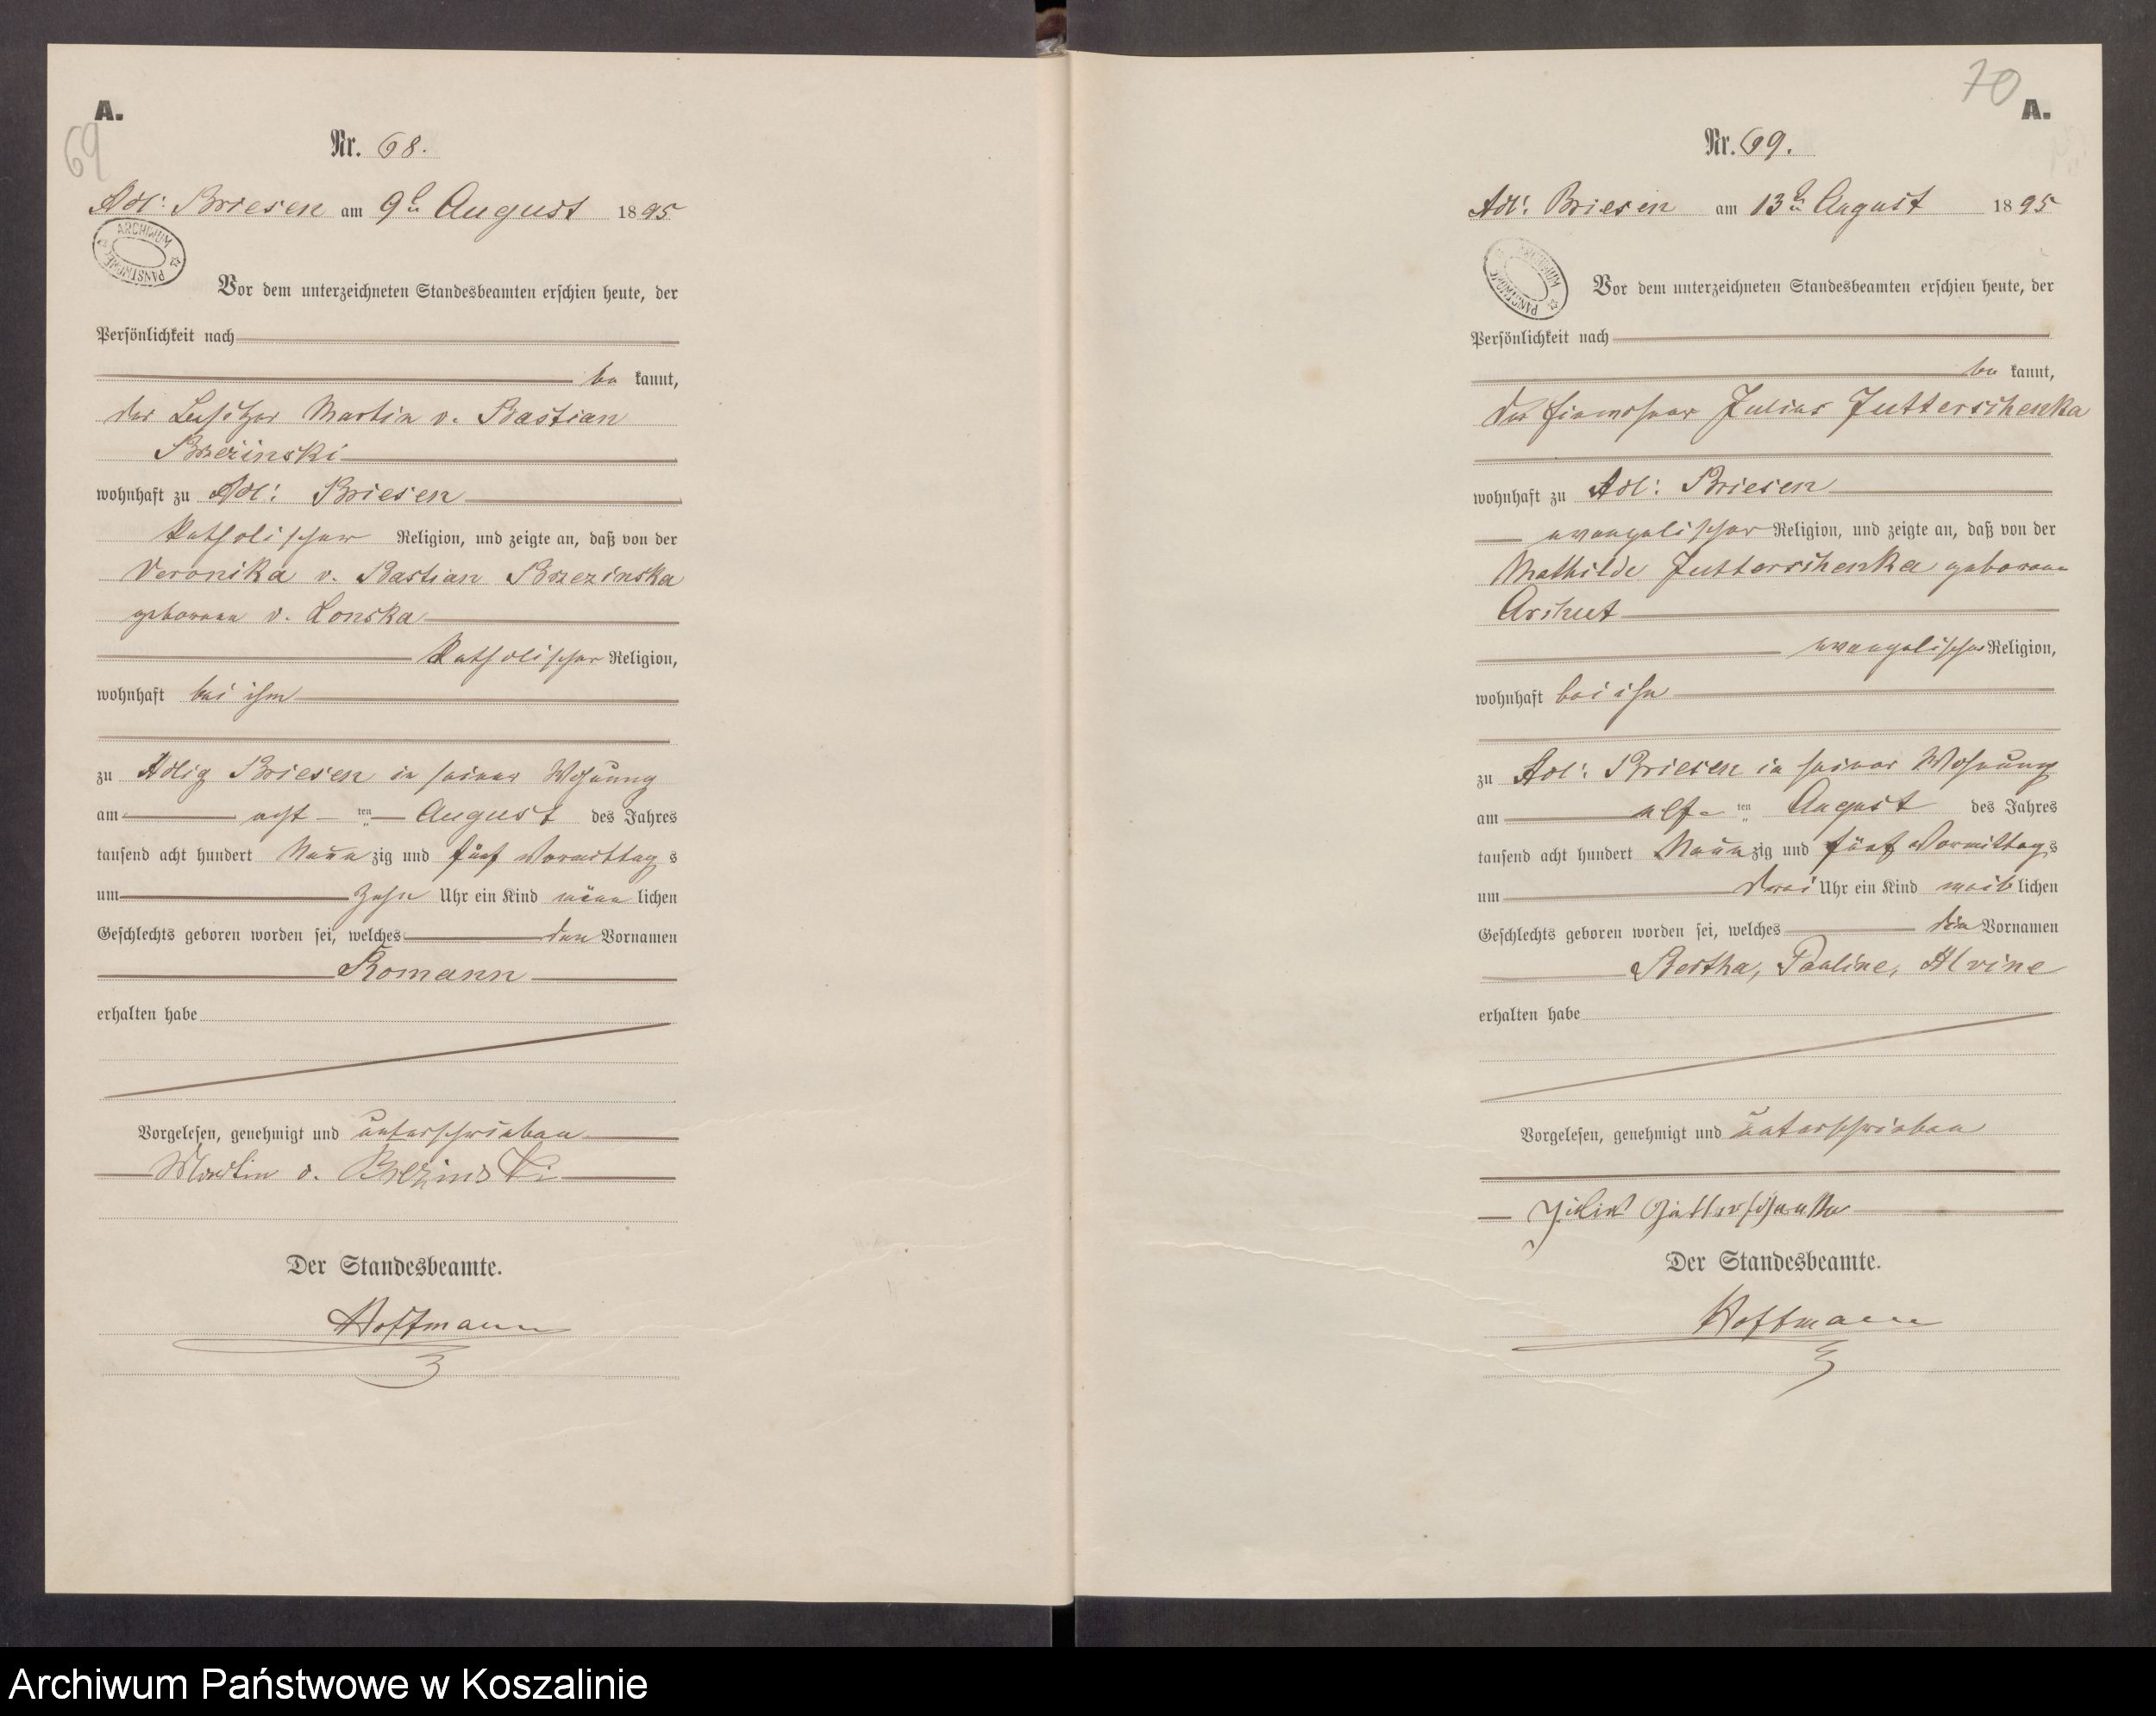 A.
69
Nr. 68.
Adl: Briesen am 9t August 1895
ARCHIWUM PAŃSTWOWE
Vor dem unterzeichneten Standesbeamten erschien heute, der
Persönlichkeit nach
be kannt,
der Besitzer Martin v. Bastian
Brzezinski
wohnhaft zu Adl: Briesen
Katholischer Religion, und zeigte an, daß von der
Veronika v. Bastian Brzezinska
geborene v. Lonska
Katholischer Religion,
wohnhaft bei ihm
zu Adlig Briesen in seiner Wohnung
am acht ten August des Jahres
tausend acht hundert Neun zig und fünf Vormittag s
um zehn Uhr ein Kind männ lichen
Geschlechts geboren worden sei, welches den Vornamen
Romann
erhalten habe
Vorgelesen, genehmigt und unterschrieben
Martin v. Brezinski
Der Standesbeamte.
Hoffmann
70
A.
Nr. 69.
Adl: Briesen am 13t August 1895
ARCHIWUM PAŃSTWOWE
Vor dem unterzeichneten Standesbeamten erschien heute, der
Persönlichkeit nach
be kannt,
der Julius Jutterschenka
wohnhaft zu Adl: Briesen
evangelischer Religion, und zeigte an, daß von der
Mathilde Jutterschenka geborene
evangelischer Religion,
wohnhaft bei ihm
zu Adl: Briesen in seiner Wohnung
am elf ten August des Jahres
tausend acht hundert Neun zig und fünf Vormittag s
um drei Uhr ein Kind weib lichen
Geschlechts geboren worden sei, welches die Vornamen
Bertha, Pauline, Alvine
erhalten habe
Vorgelesen, genehmigt und unterschrieben
Der Standesbeamte.
Hoffmann
Archiwum Państwowe w Koszalinie